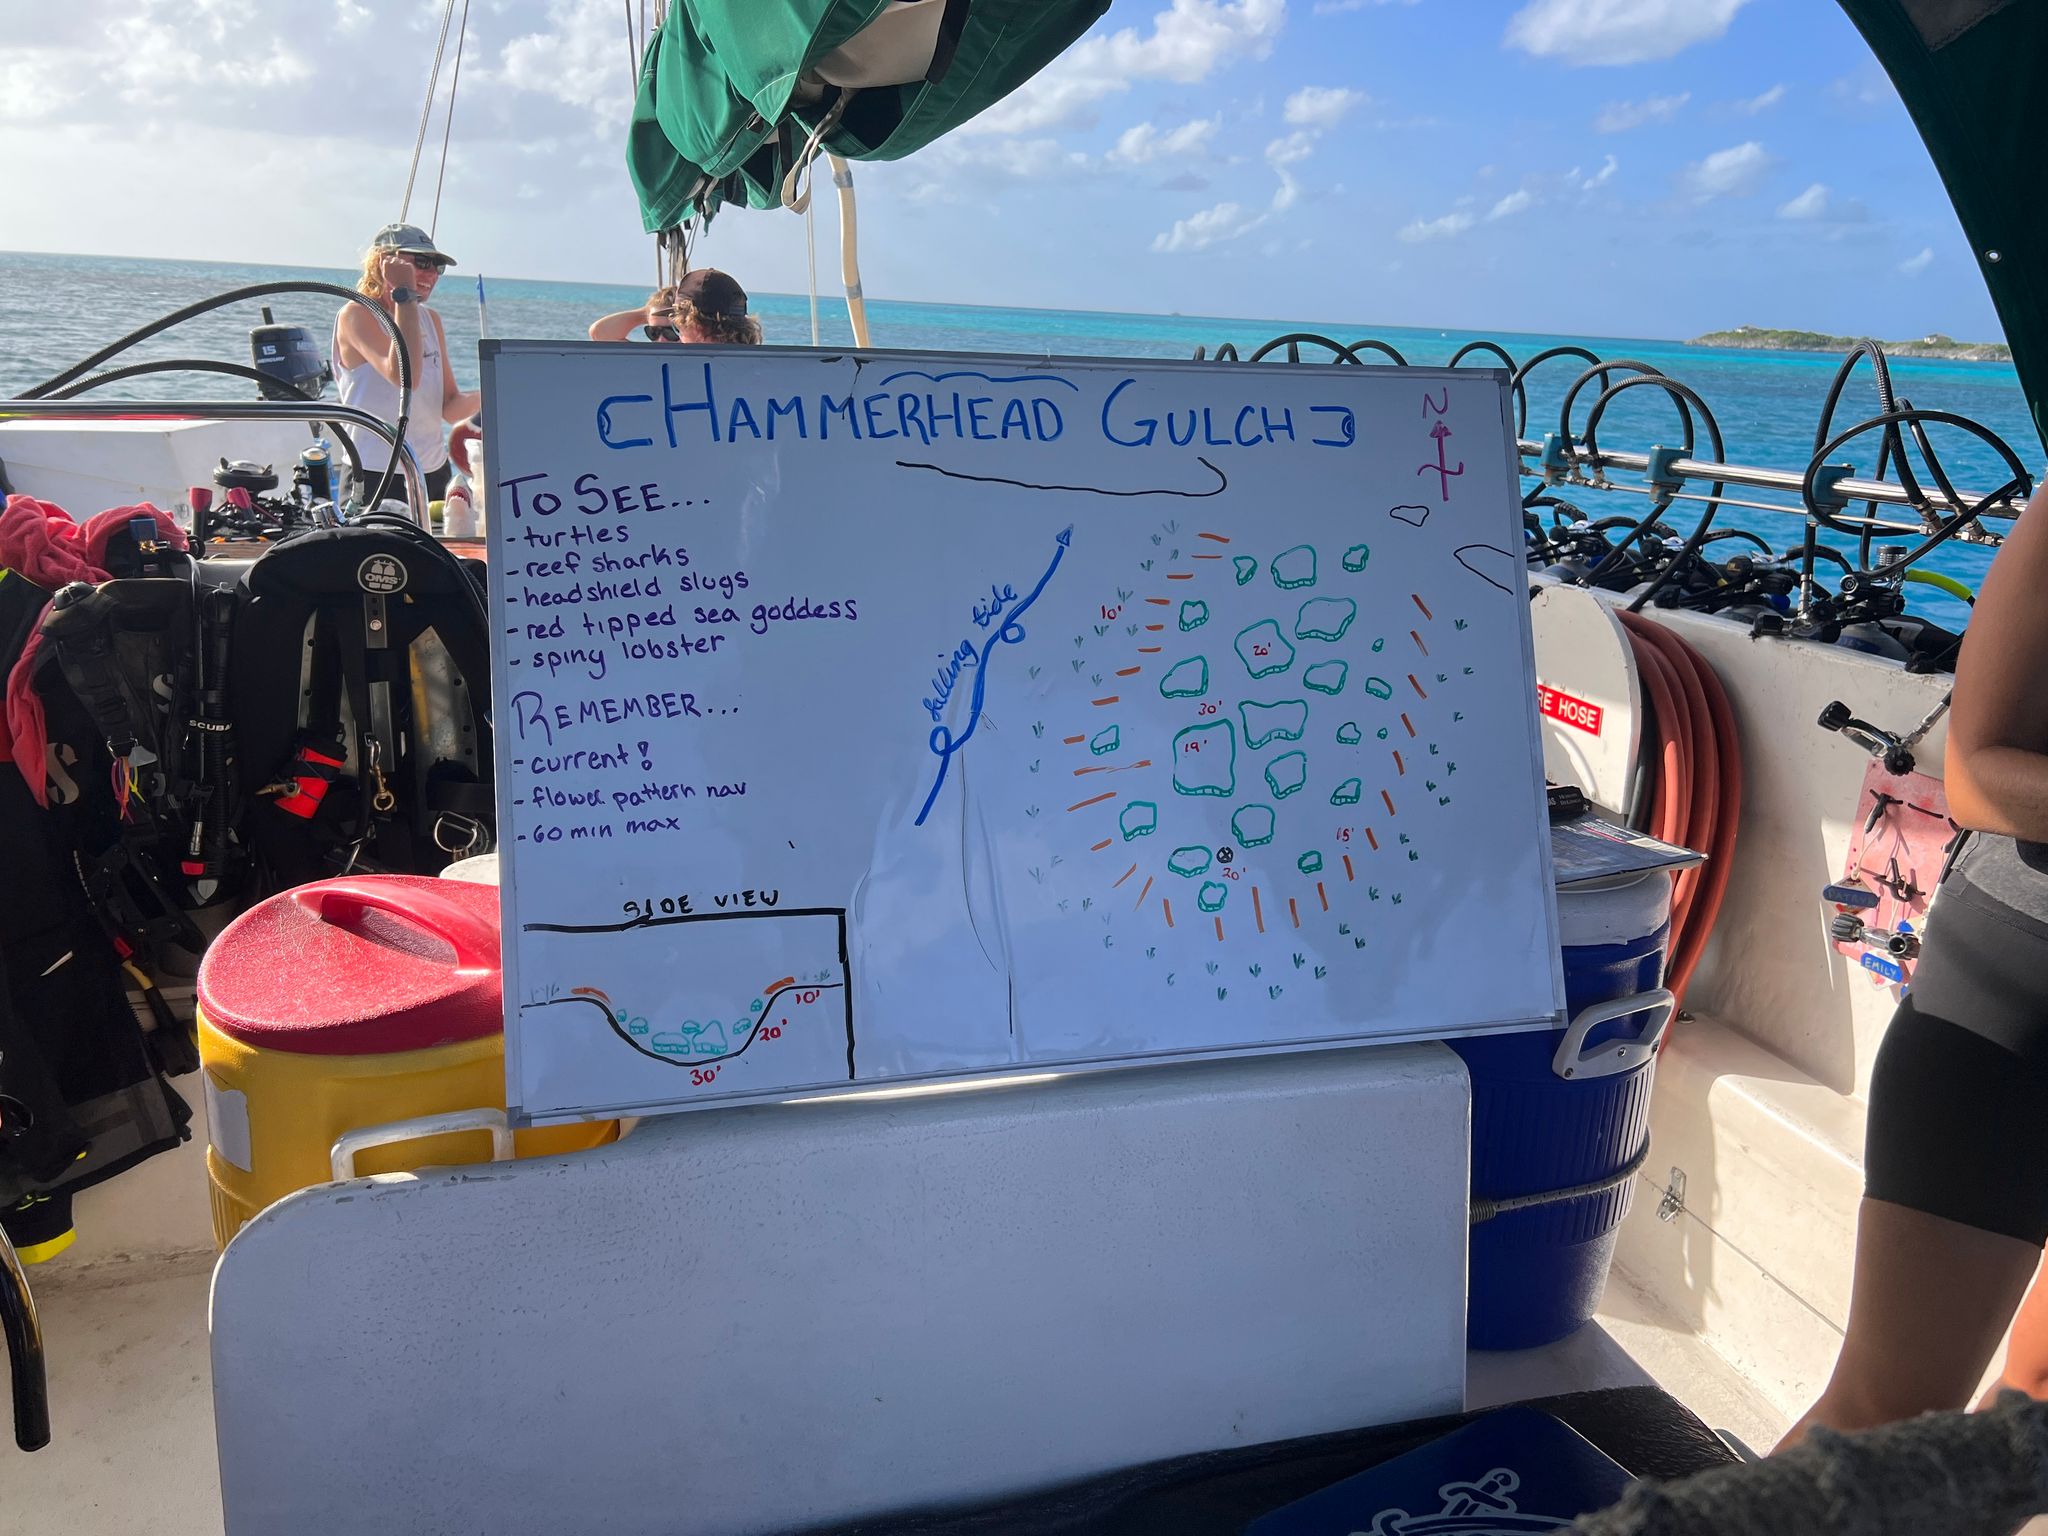 HAMMERHEAD GULCH
N
TO SEE...
- turtles
- reef sharks
- headshield slugs
- red tipped sea goddess
- spiny lobster
REMEMBER...
- current!
- flower pattern nav
- 60 min max
falling tide
10'
20'
30'
19'
15'
20'
SIDE VIEW
10'
20'
30'
15
MERCURY
OMS
SCUBA
RE HOSE
EMILY